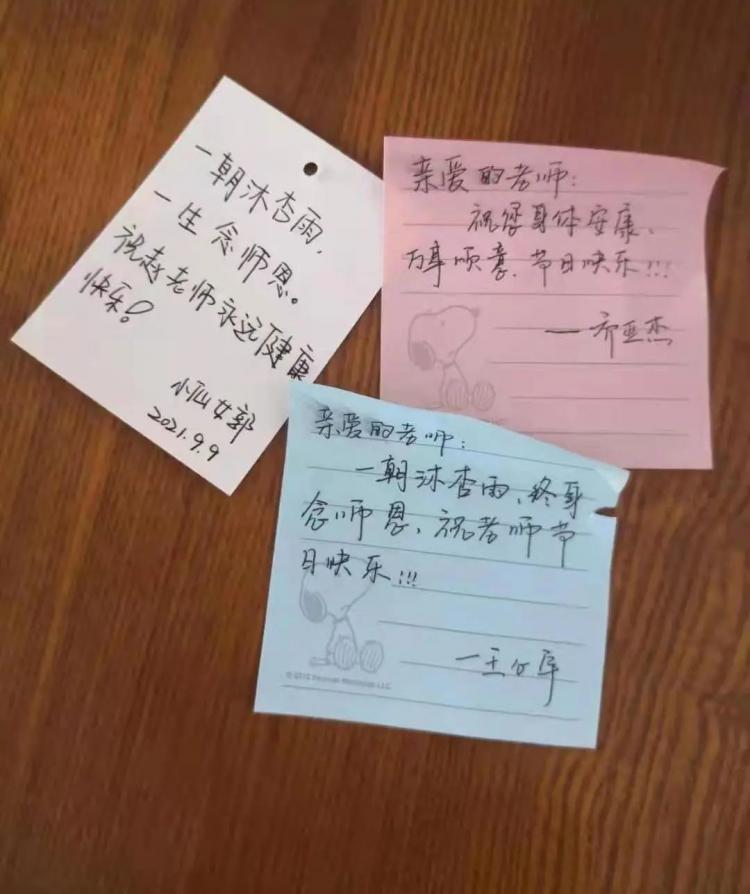 一朝沐杏雨,
一生念师恩。
祝赵老师永远健康
快乐!
小仙女郭
2021.9.9
亲爱的老师:
祝您身体安康、
万事顺意、节日快乐!!!
—齐亚杰
亲爱的老师:
一朝沐杏雨、终身
念师恩、祝老师节
日快乐!!!
—王